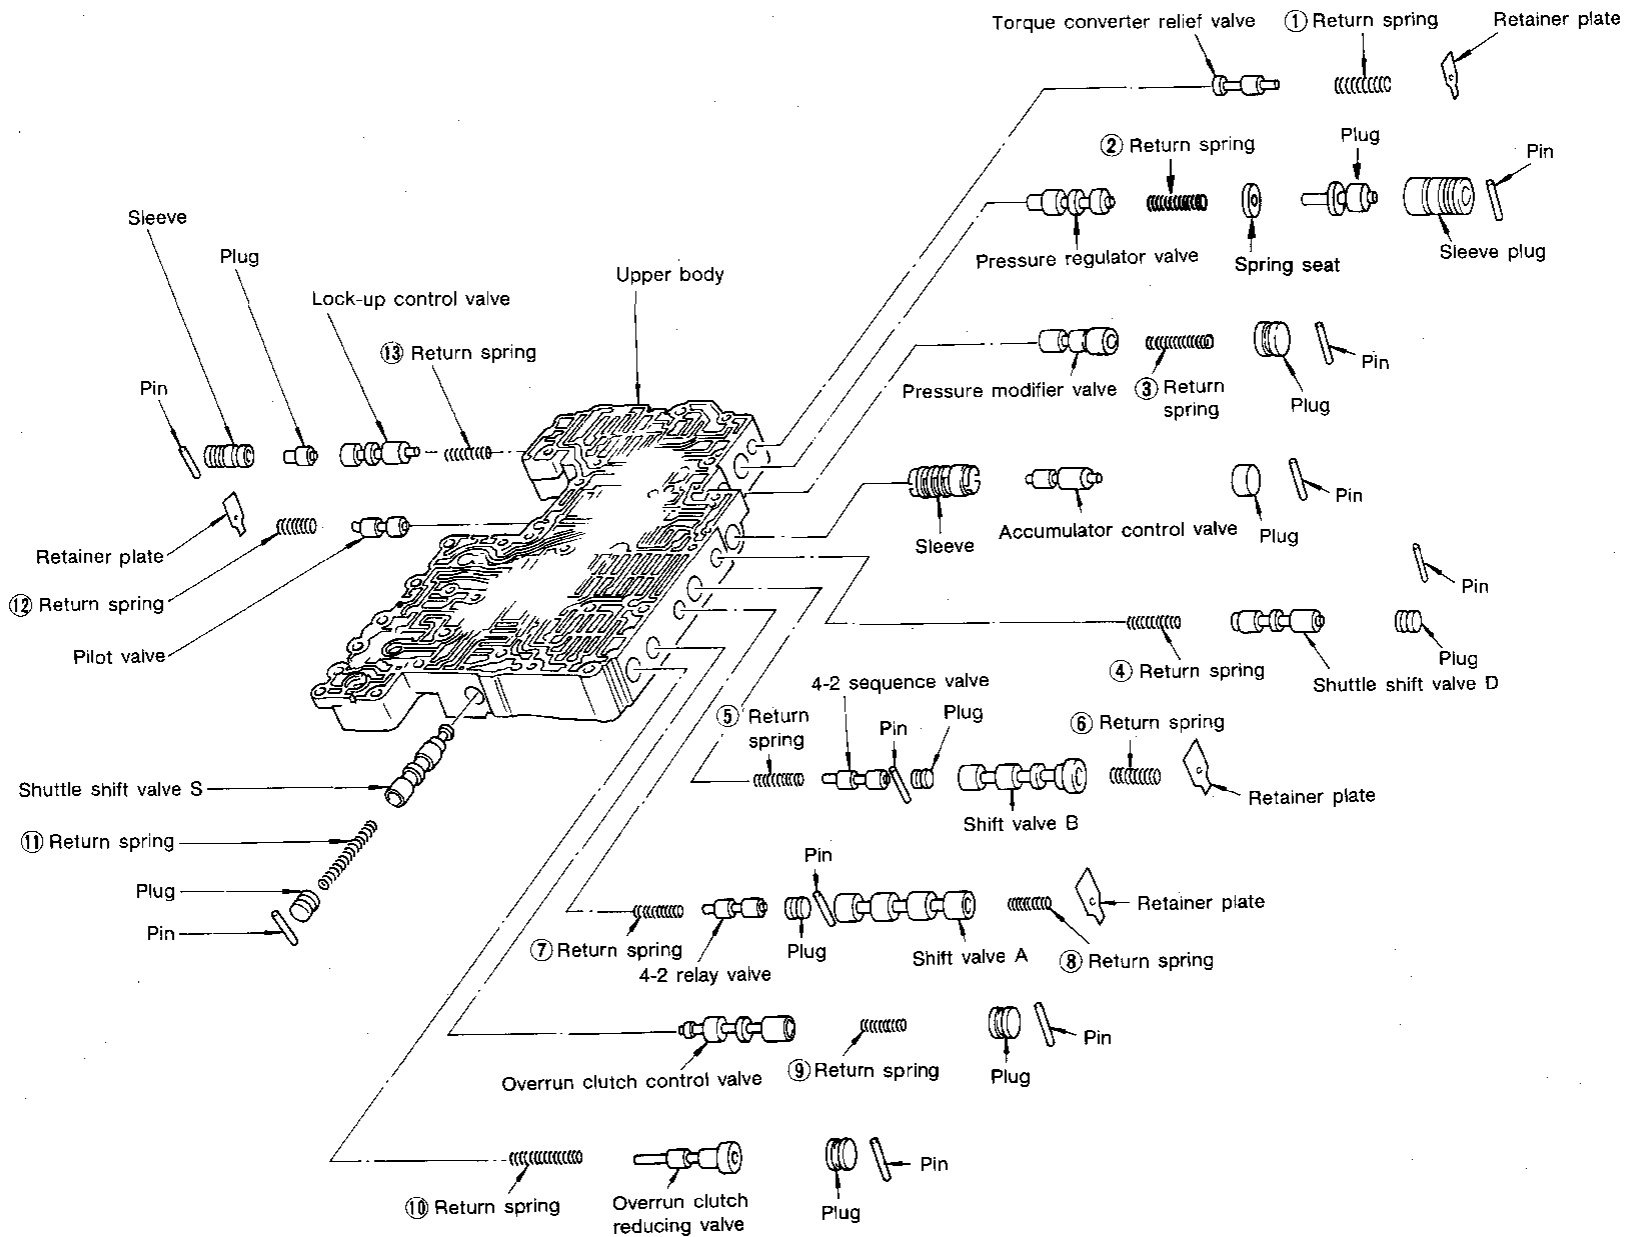 Torque converter relief valve
① Return spring
Retainer plate
② Return spring
Plug
Pin
Pressure regulator valve
Spring seat
Sleeve plug
Sleeve
Plug
Lock-up control valve
Upper body
⑬ Return spring
Pin
Pressure modifier valve
③ Return
spring
Plug
Pin
Sleeve
Accumulator control valve
Plug
Pin
Retainer plate
⑫ Return spring
Pilot valve
Pin
④ Return spring
Plug
Shuttle shift valve D
4-2 sequence valve
⑤ Return
spring
Pin
Plug
⑥ Return spring
Shift valve B
Retainer plate
Shuttle shift valve S
⑪ Return spring
Plug
Pin
Pin
⑦ Return spring
4-2 relay valve
Plug
Shift valve A
⑧ Return spring
Retainer plate
Overrun clutch control valve
⑨ Return spring
Plug
Pin
⑩ Return spring
Overrun clutch
reducing valve
Plug
Pin